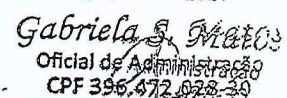 Gabriela S. Matos
Oficial de Administração
CPF 396.472.028-30